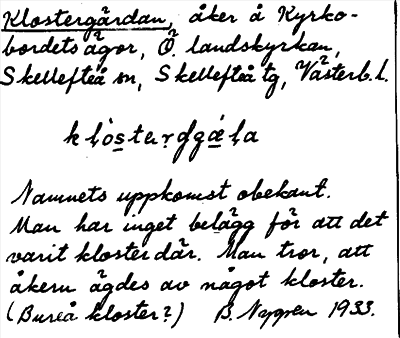 Klostergärdan, åker å Kyrko-
bordets ägor, Ö. landskyrkan,
Skellefteå sn, Skellefteå tg, Västerb. l.
Namnets uppkomst obekant.
Man har inget belägg för att det
varit kloster där. Man tror, att
åkern ägdes av något kloster.
(Bureå kloster?) B. Nygren 1933.